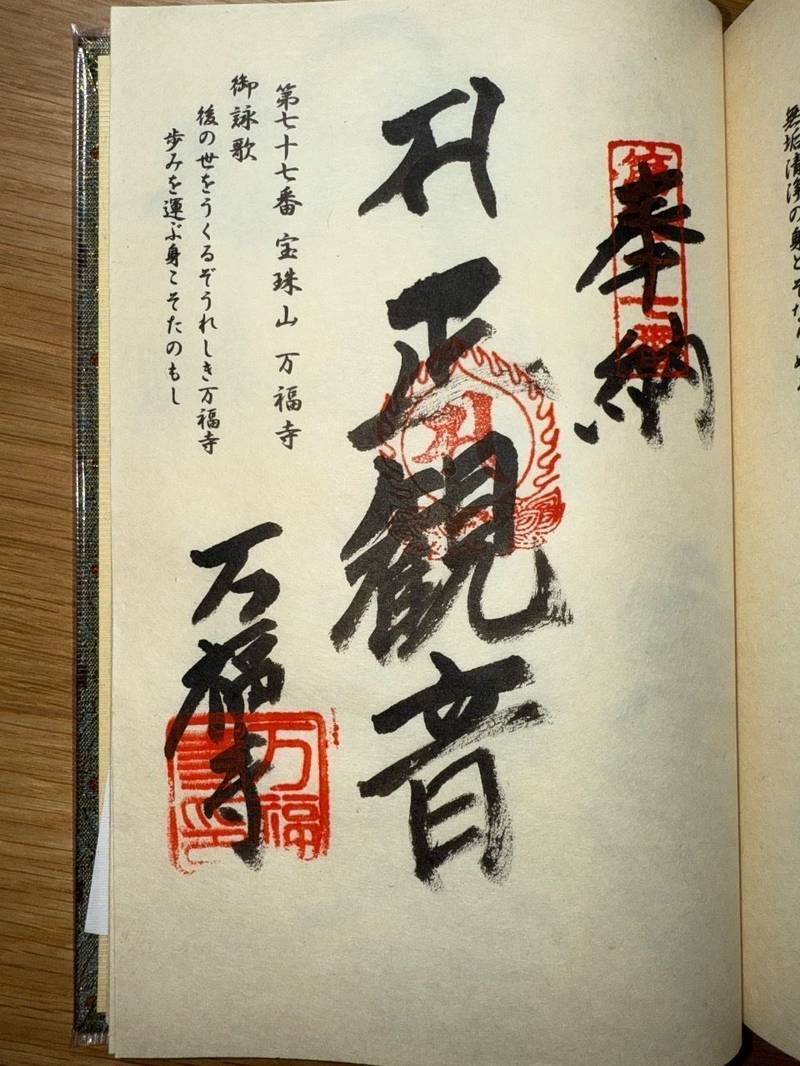 無垢清浄の身とぞな
奉納
正観音
第七十七番 宝珠山 万福寺
御詠歌
後の世をうくるぞうれしき万福寺
歩みを運ぶ身こそたのもし
万福寺
万福